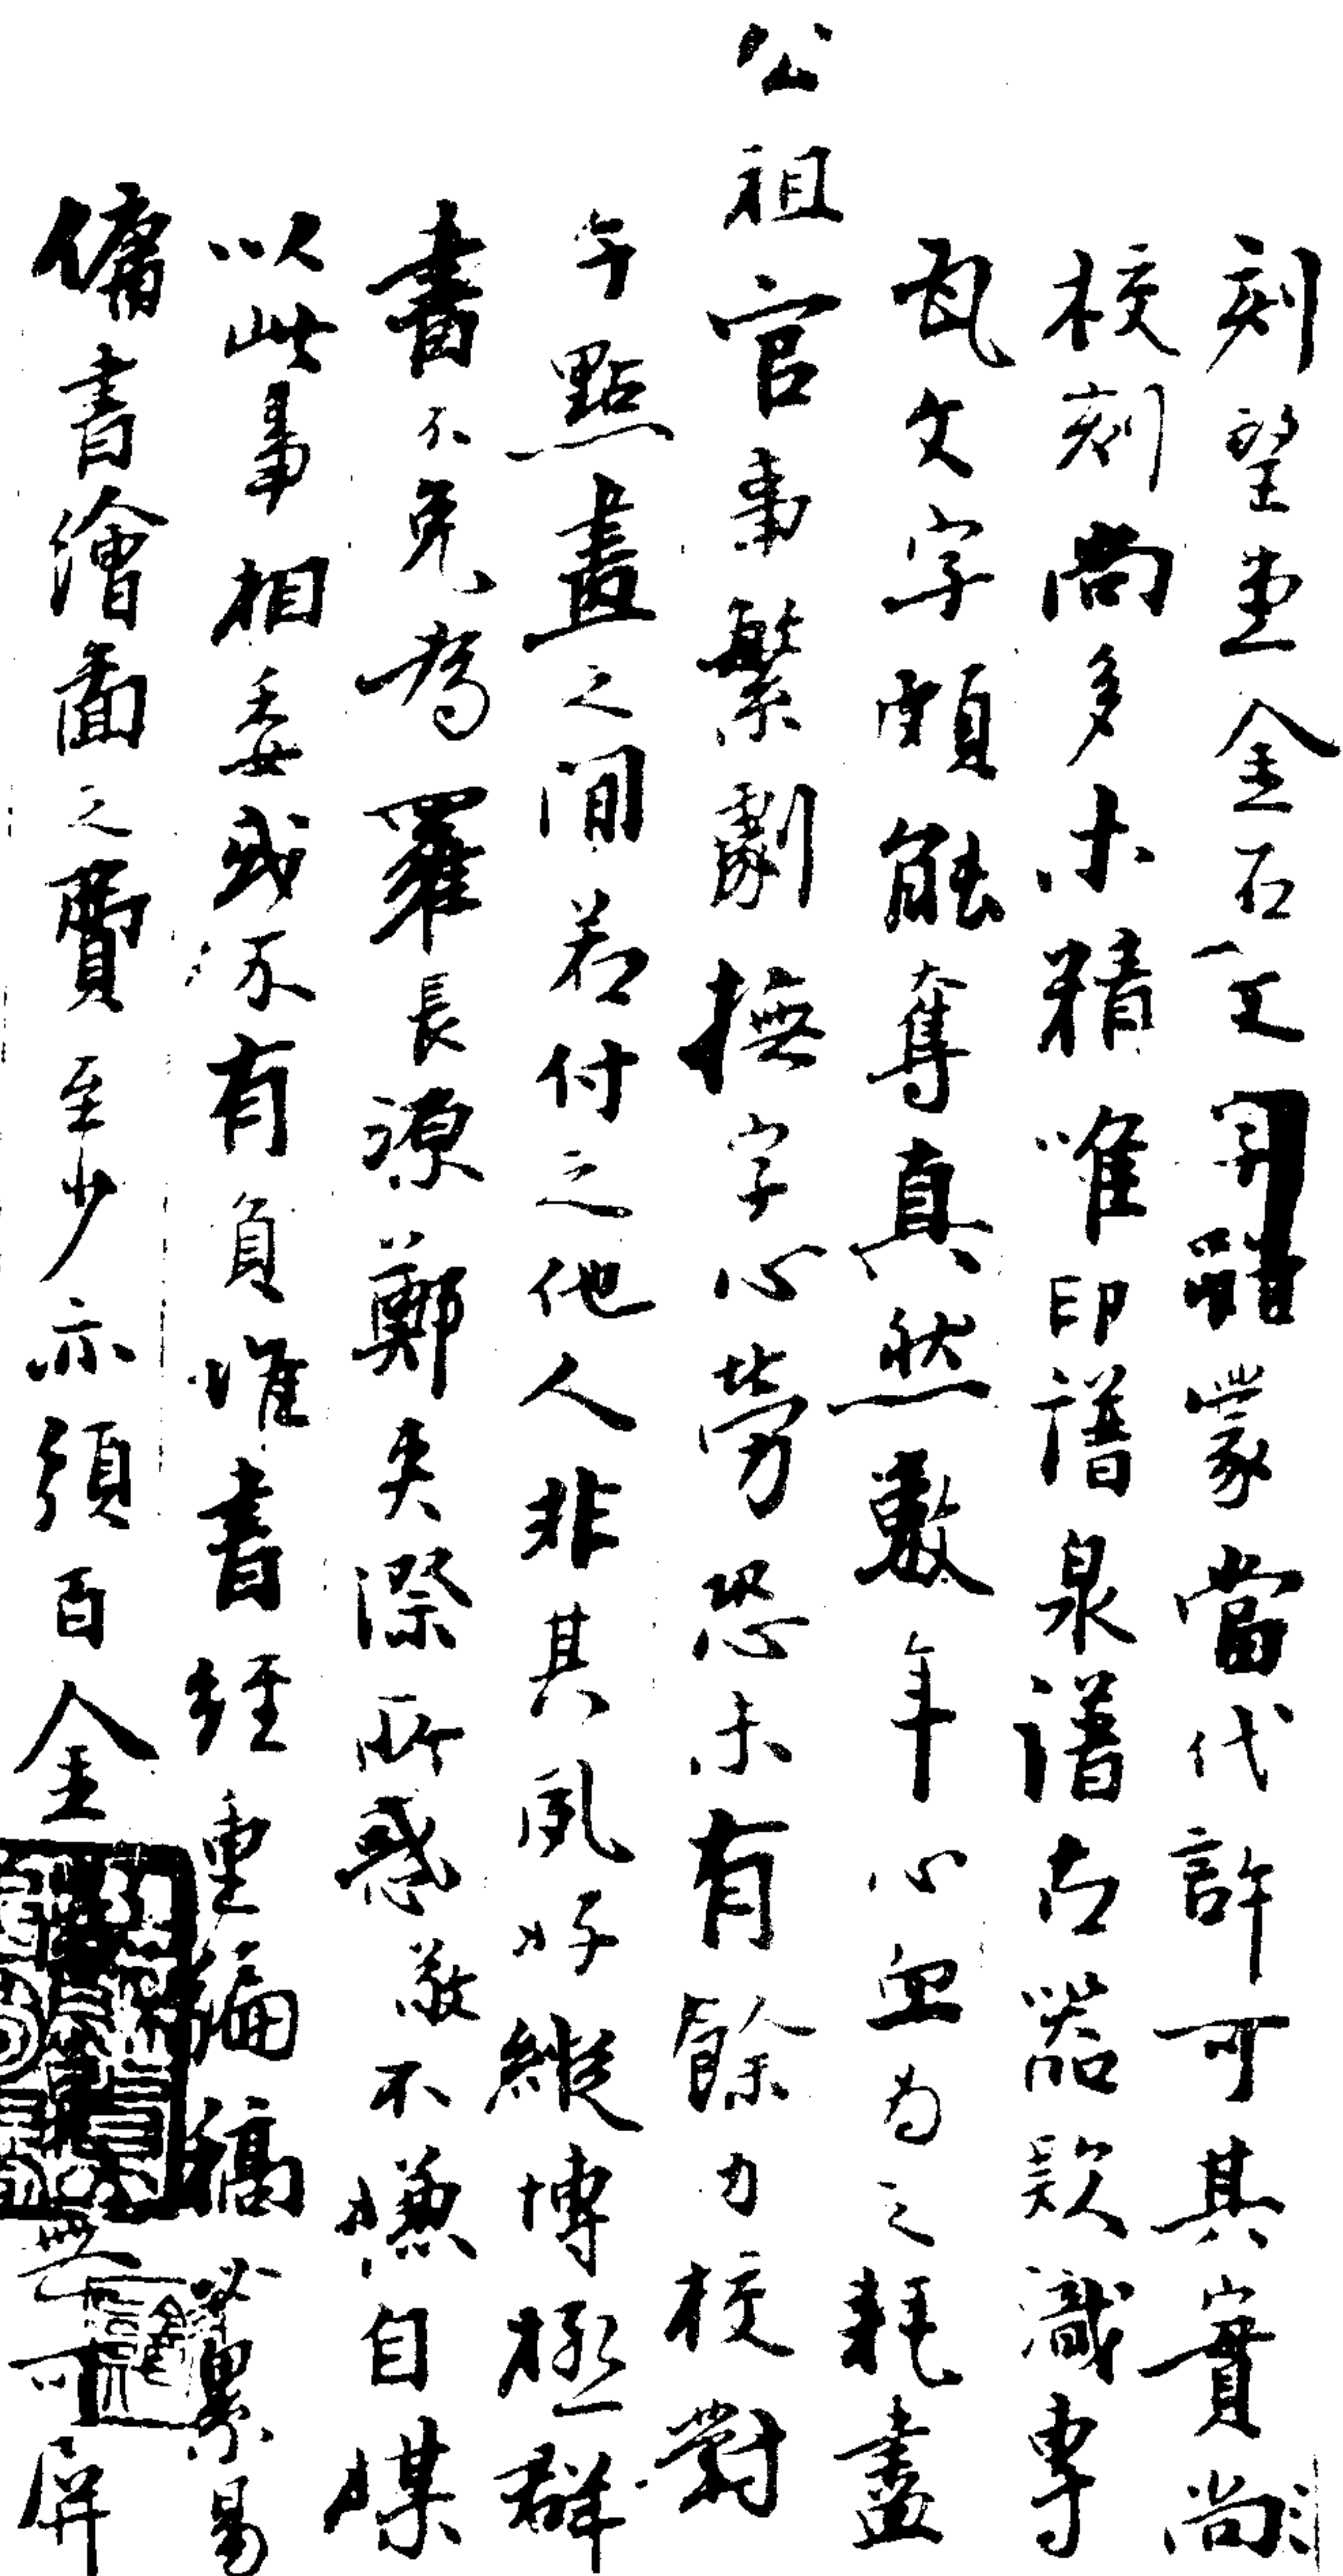 刻望堂金石文字譜蒙當代許可其實尚
校刻尚多未精唯印譜泉譜古器款識專
瓦文字頗能奪真然數年心血為之耗盡
公祖官事繁劇撫字心勞恐未有餘力校對
午點畫之間若付之他人非其夙好縱博極群
書不免為羅長源鄭夾漈所惑敬不嫌自媒
以此事相委或不有負惟書經重編稿必累易
傭書繪圖之費至少亦須百金無可屏